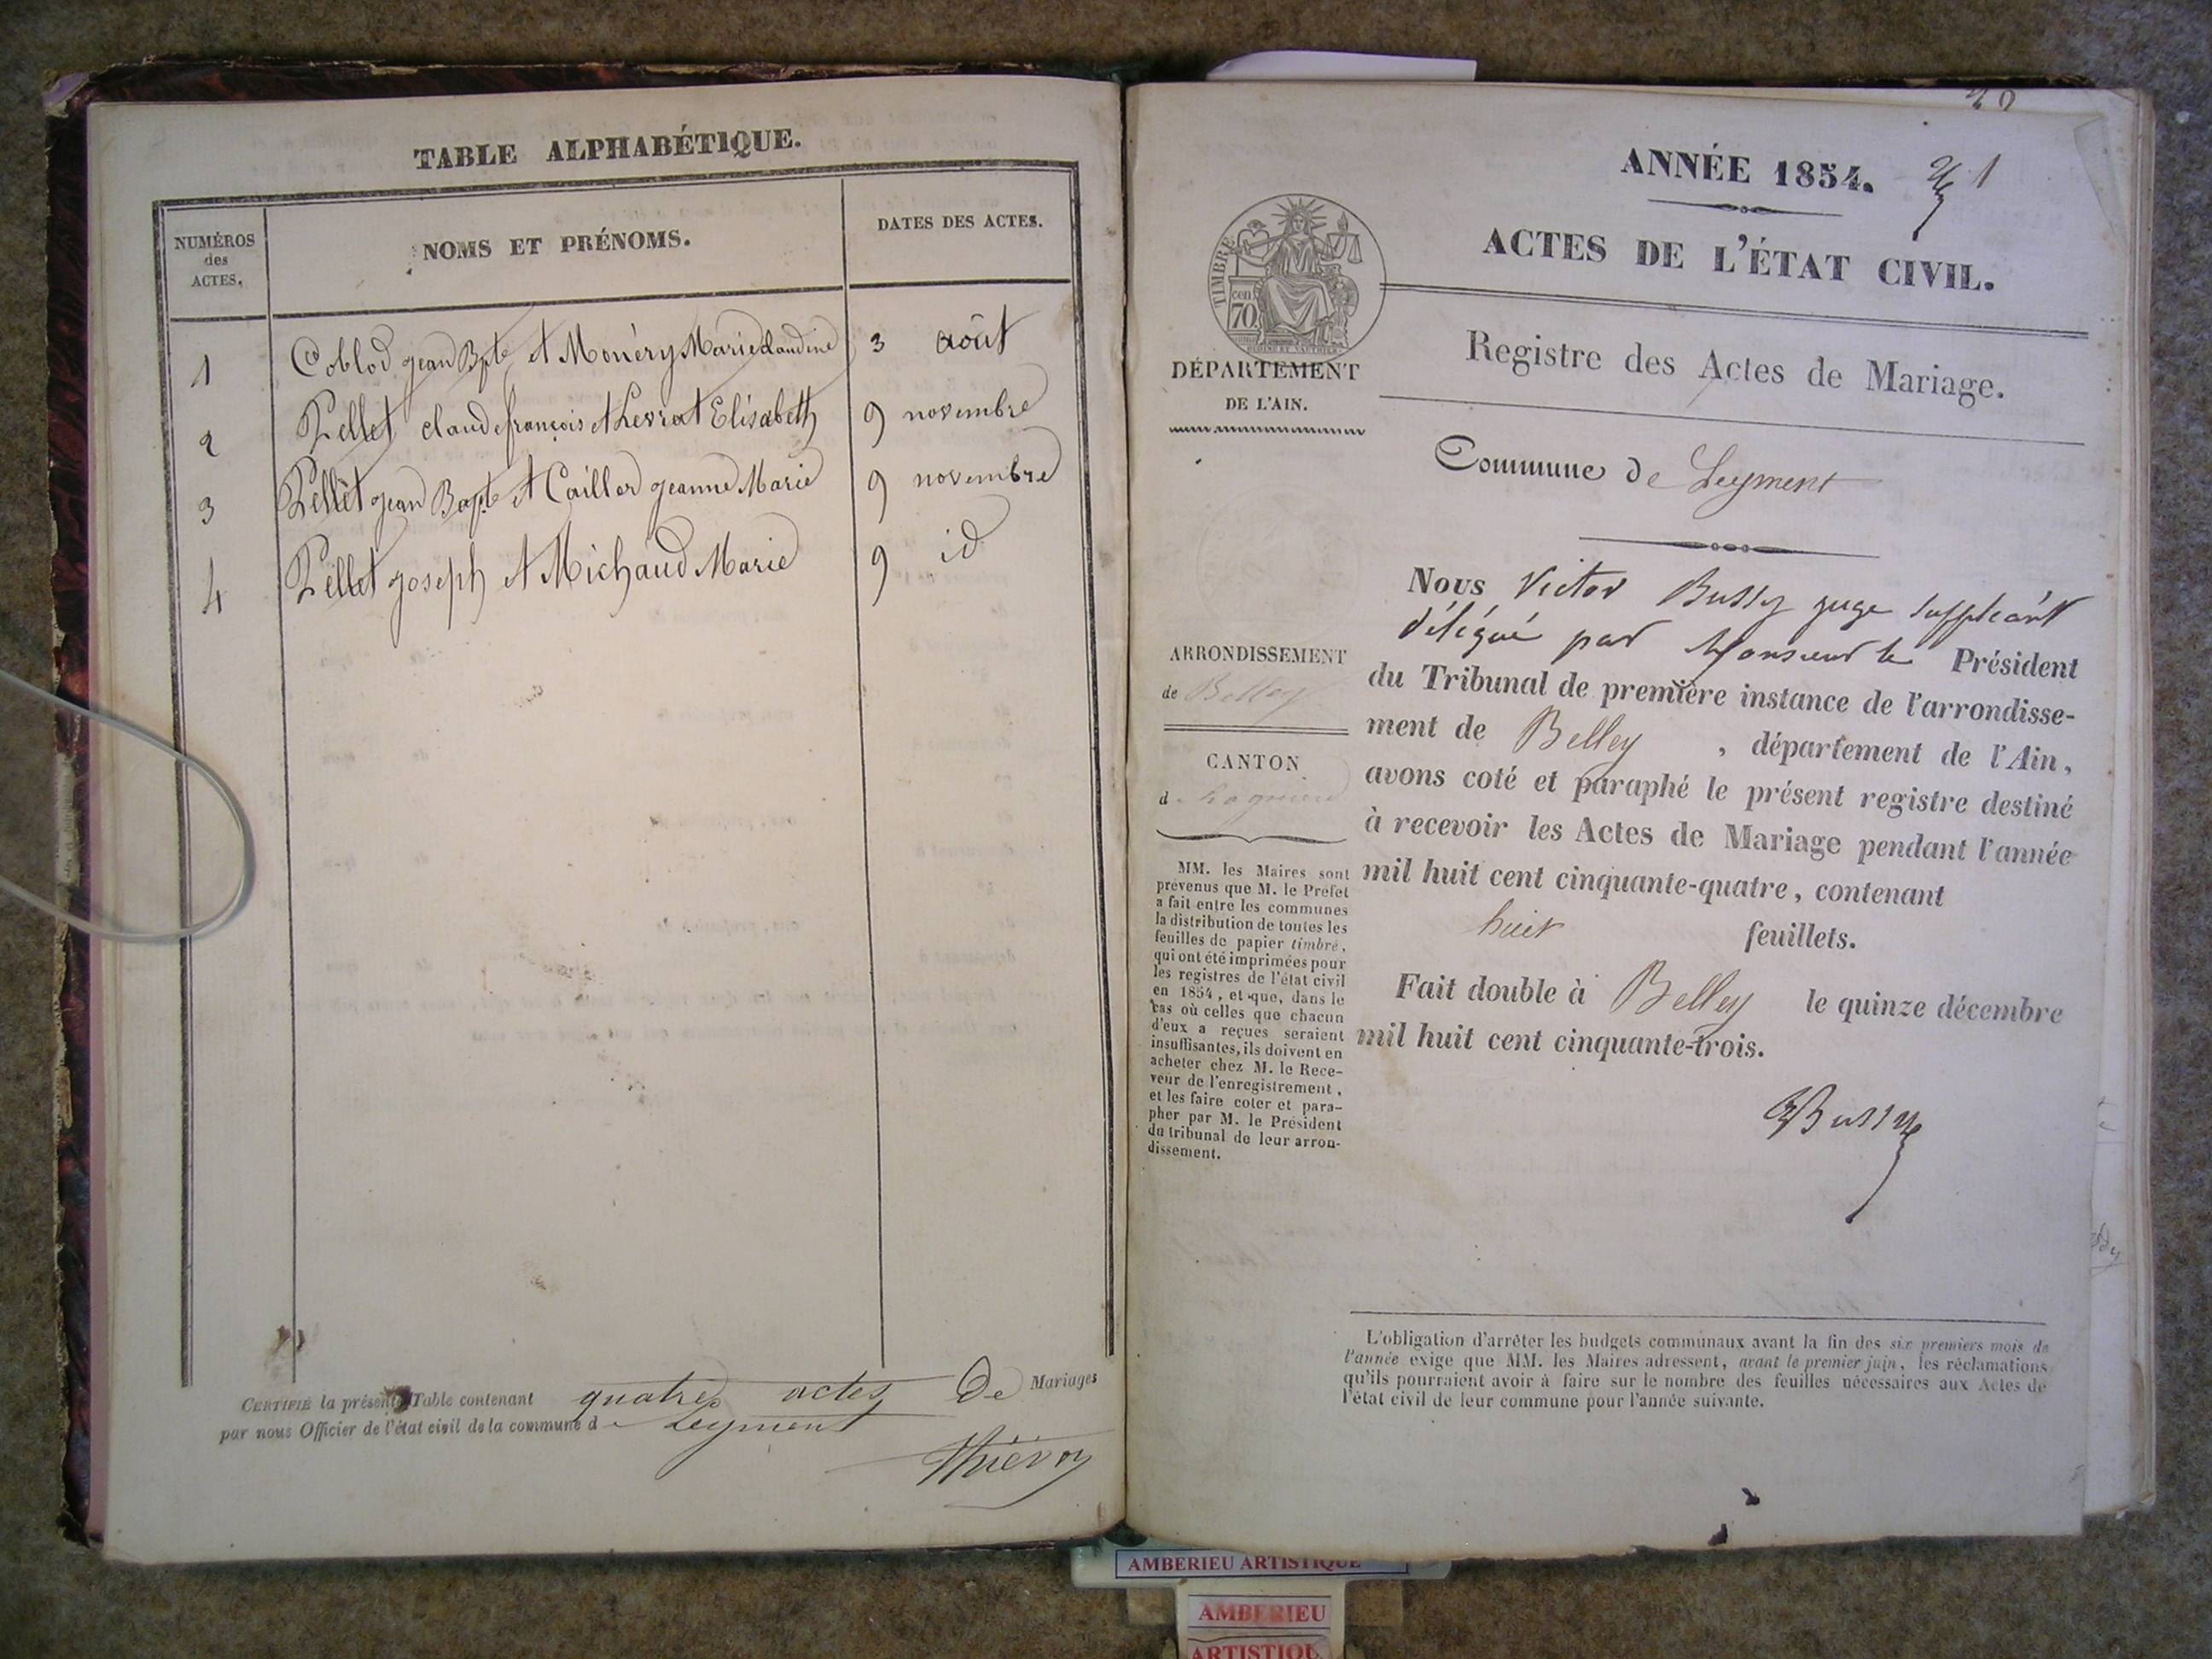 TABLE ALPHABÉTIQUE.
NUMÉROS
des
ACTES.
NOMS ET PRÉNOMS.
DATES DES ACTES.
1 Coblod jean Bpte et Monéry Marie claudine 3 août
2 Pellet claude françois et Levrat Elisabeth 9 novembre
3 Pellet jean Bapte et Cailler jeanne Marie 9 novembre
4 Pellet joseph et Michaud Marie 9 id
CERTIFIÉ la présente Table contenant quatre actes De Mariages
par nous Officier de l'état civil de la commune de Leyment
Thiévon
ANNÉE 1854. 1
ACTES DE L'ÉTAT CIVIL.
TIMBRE
cen
70
DÉPARTEMENT
DE L'AIN.
Registre des Actes de Mariage.
Commune de Leyment
ARRONDISSEMENT
de Belley
CANTON
d
MM. les Maires sont
prévenus que M. le Préfet
a fait entre les communes
la distribution de toutes les
feuilles de papier timbré,
qui ont été imprimées pour
les registres de l'état civil
en 1854, et que, dans le
cas où celles que chacun
d'eux a reçues seraient
insuffisantes, ils doivent en
acheter chez M. le Rece-
veur de l'enregistrement,
et les faire coter et para-
pher par M. le Président
du tribunal de leur arron-
dissement.
Nous Victor Bussy juge suppléant
délégué par Monsieur le Président
du Tribunal de première instance de l'arrondisse-
ment de Belley, département de l'Ain,
avons coté et paraphé le présent registre destiné
à recevoir les Actes de Mariage pendant l'année
mil huit cent cinquante-quatre, contenant
huit feuillets.
Fait double à Belley le quinze décembre
mil huit cent cinquante-trois.
Bussy
L'obligation d'arrêter les budgets communaux avant la fin des six premiers mois de
l'année exige que MM. les Maires adressent, avant le premier juin, les réclamations
qu'ils pourraient avoir à faire sur le nombre des feuilles nécessaires aux Actes de
l'état civil de leur commune pour l'année suivante.
AMBERIEU ARTISTIQUE
AMBERIEU
ARTISTIQU